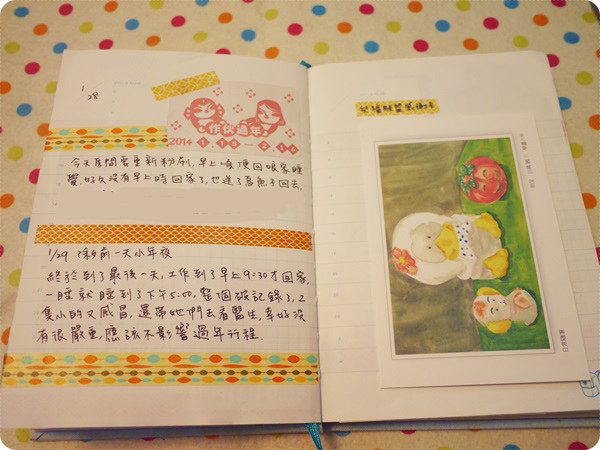 1/28
作伙過年
2014 1.18-2.14
今天房間需重新粉刷,早上順便回娘家睡
覺,好久沒有早上時回家了,也送了烏魚子回去.
1/29 除夕前一天小年夜
終於到了最後一天,工作到了早上9:30才回家,
一睡就睡到了下午5:00,整個破記錄了,2
隻小的又感冒,還帶她們去看醫生,幸好沒
有很嚴重,應該不影響過年行程.